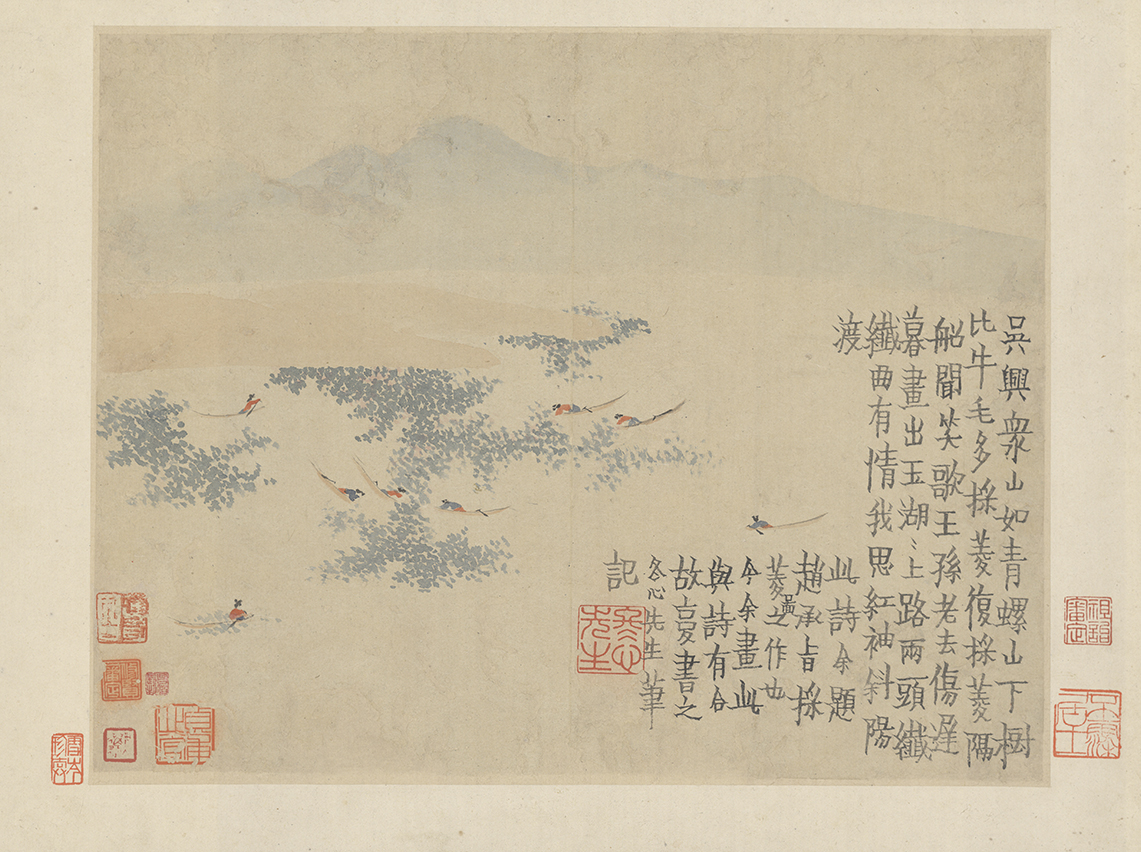 吳興衆山如青螺山下樹
比牛毛多採菱復採菱隔
船聞笑歌王孫老去傷遲
暮畫出玉湖〻上路兩頭纖
纖曲有情我思紅袖斜陽
渡
此詩余題
趙承旨採
菱畫之作也
今余畫此
與詩有合
故書之
冬心先生筆
記
冬心先生
祖詒審定